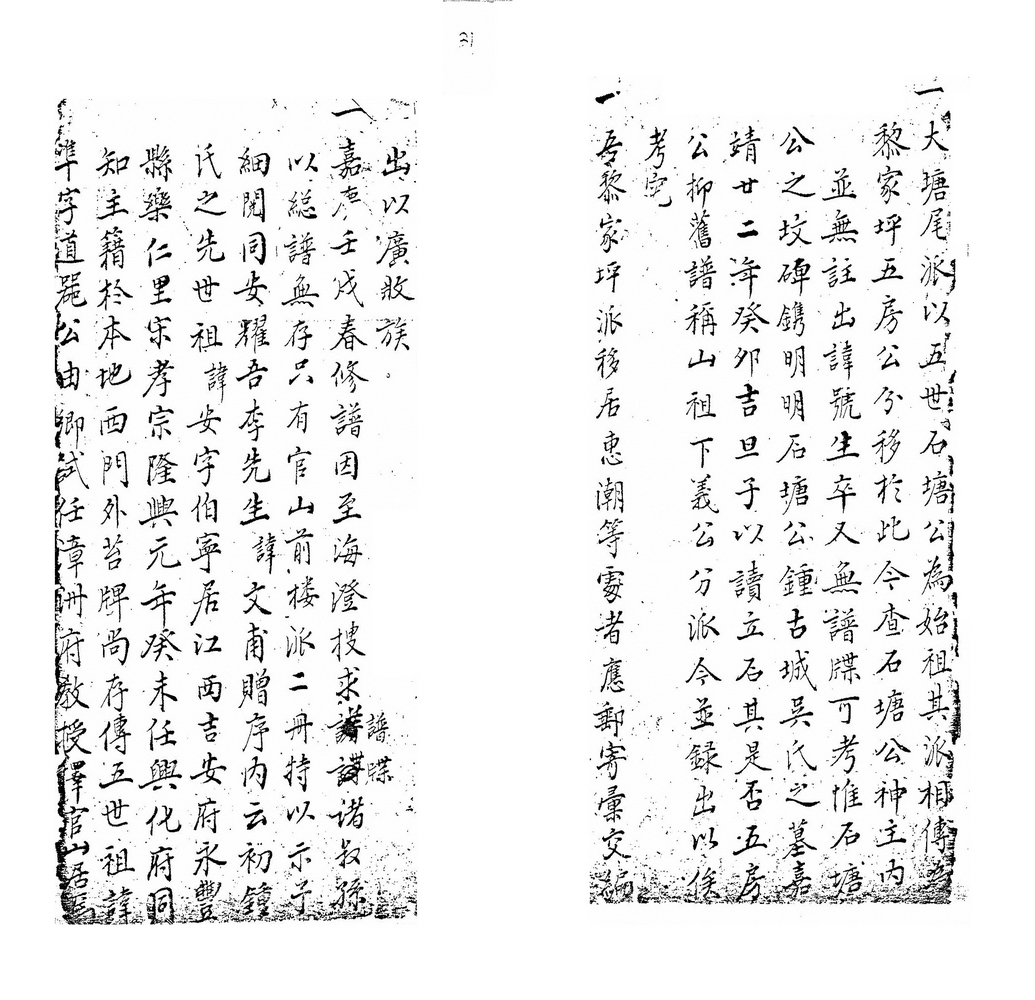 一大塘尾派以五世石塘公為始祖其派相傳為
黎家坪五房公分移於此今查石塘公神主內
並無註出諱號生卒又無譜牒可考惟石塘
公之坟碑鐫明明石塘公鍾古城吳氏之墓嘉
靖廿二年癸卯吉旦子以讀立石其是否五房
公抑舊譜稱山祖下義公分派今並録出以俟
考定
一吾黎家坪派移居惠潮等處者應郵寄彙交編
出以廣收族
一嘉慶壬戌春修譜因至海澄搜求譜牒诸叔孫
以総譜無存只有官山前楼派二冊特以示予
細閱同安耀吾李先生諱文甫贈序內云初鍾
氏之先世祖諱安字伯寧居江西吉安府永豐
縣樂仁里宋孝宗隆興元年癸未任興化府同
知主籍於本地西門外苔牌尚存傳五世祖諱
準字道器公由鄉試任漳州府教授擇官山居焉